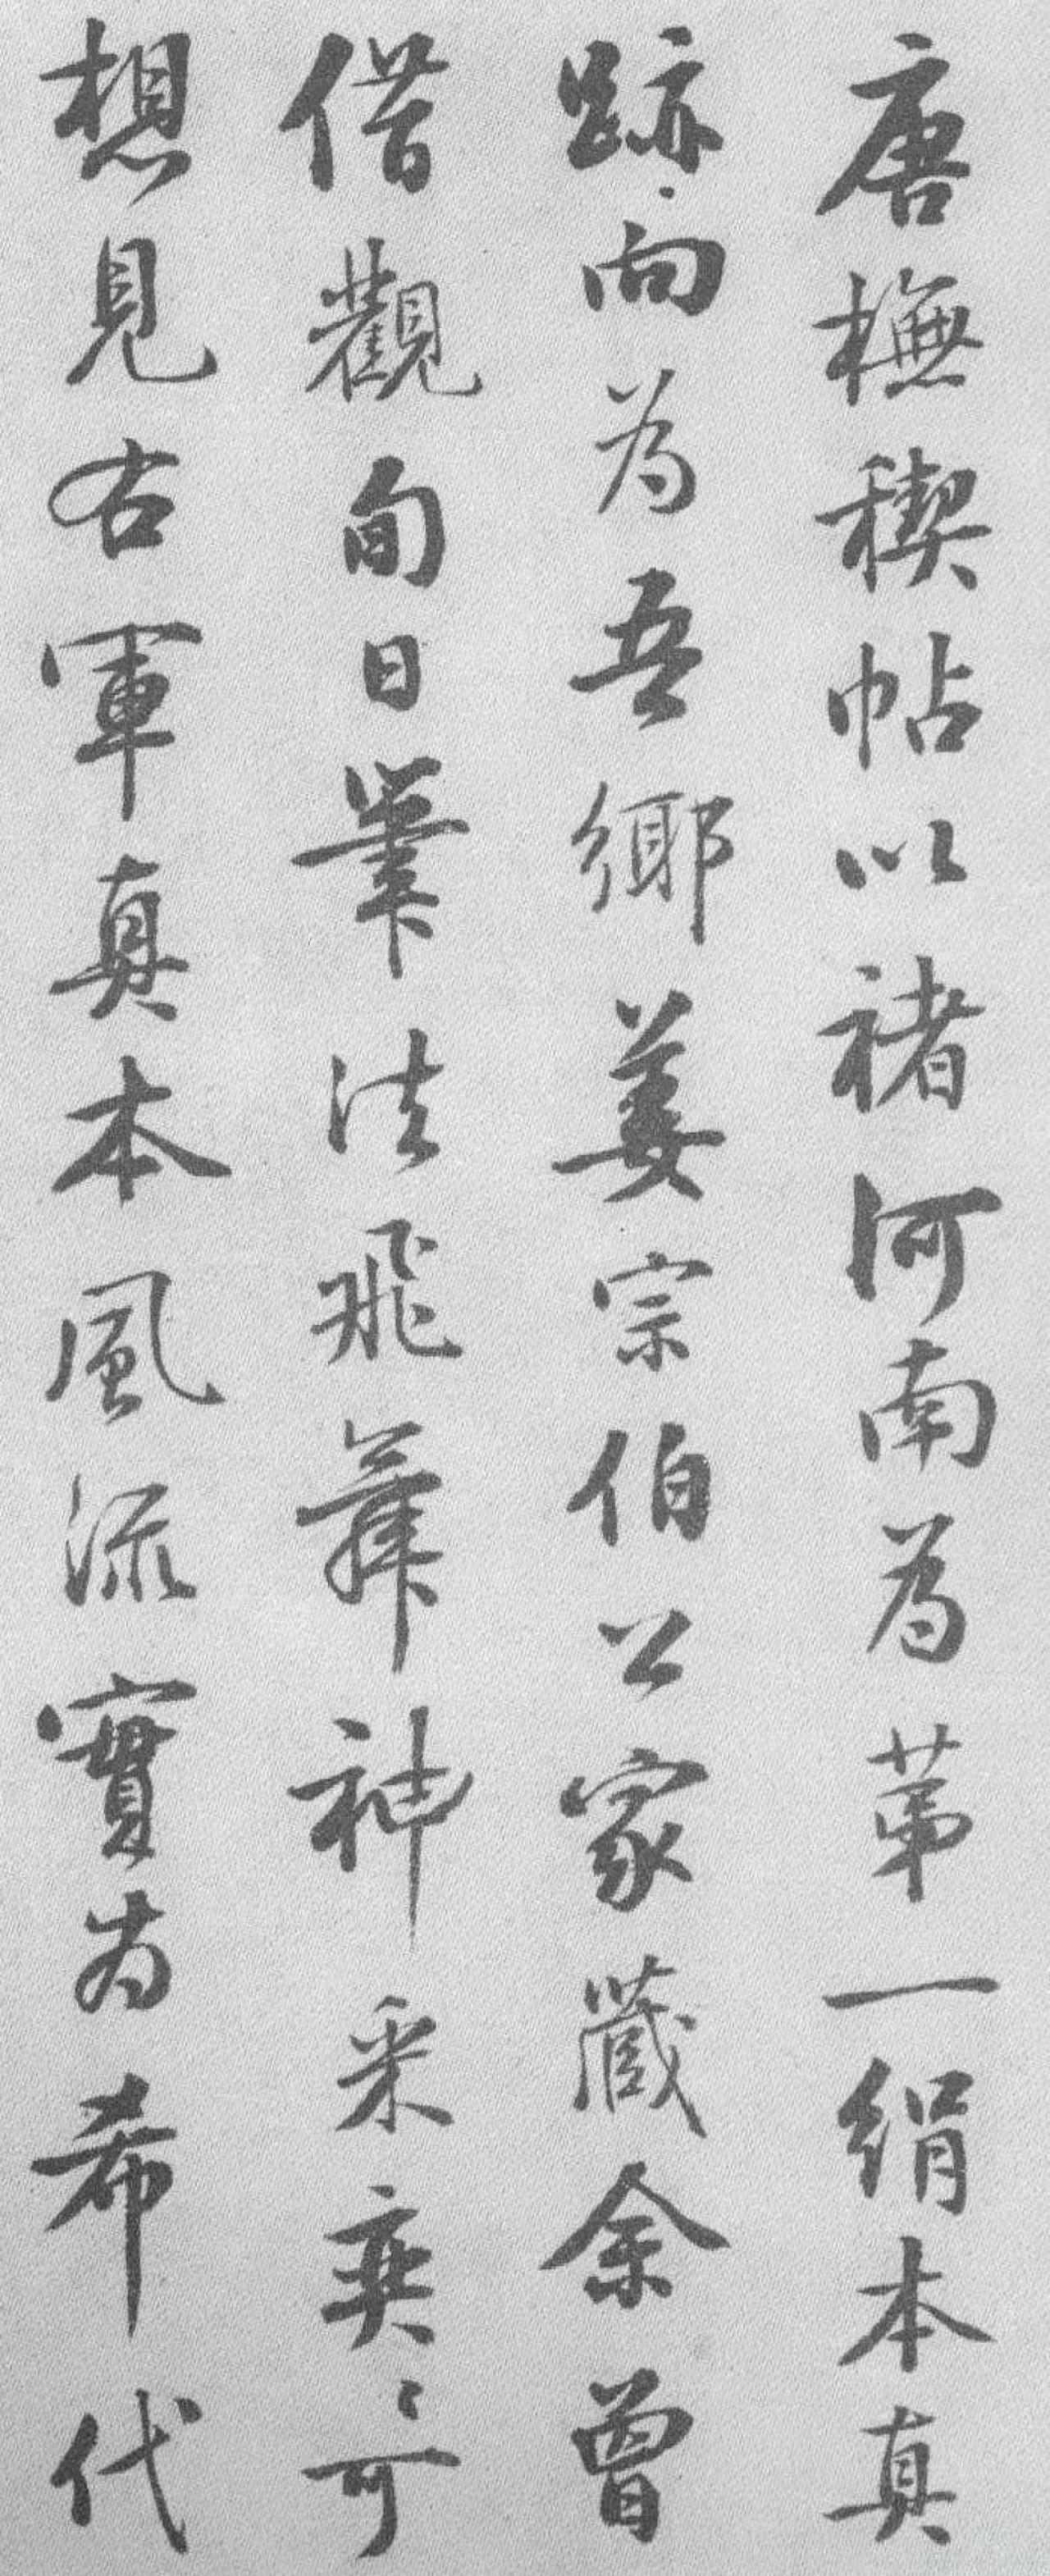 唐橅稧帖以褚河南為苐一絹本真
跡向為吾鄉姜宗伯公家藏余曾
借觀旬日筆法飛舞神采奕〻可
想見右軍真本風流實为希代